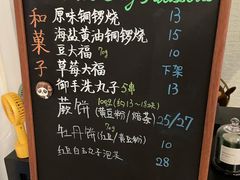 和菓子
原味铜锣烧 13
海盐黄油铜锣烧 15
豆大福 70g 10
草莓大福 下架
御手洗丸子 5串 13
蕨饼 (黄豆粉/抹茶) 25/27
牡丹饼 70g (红豆/黄豆粉) 10
红豆白玉丸子泡头 28